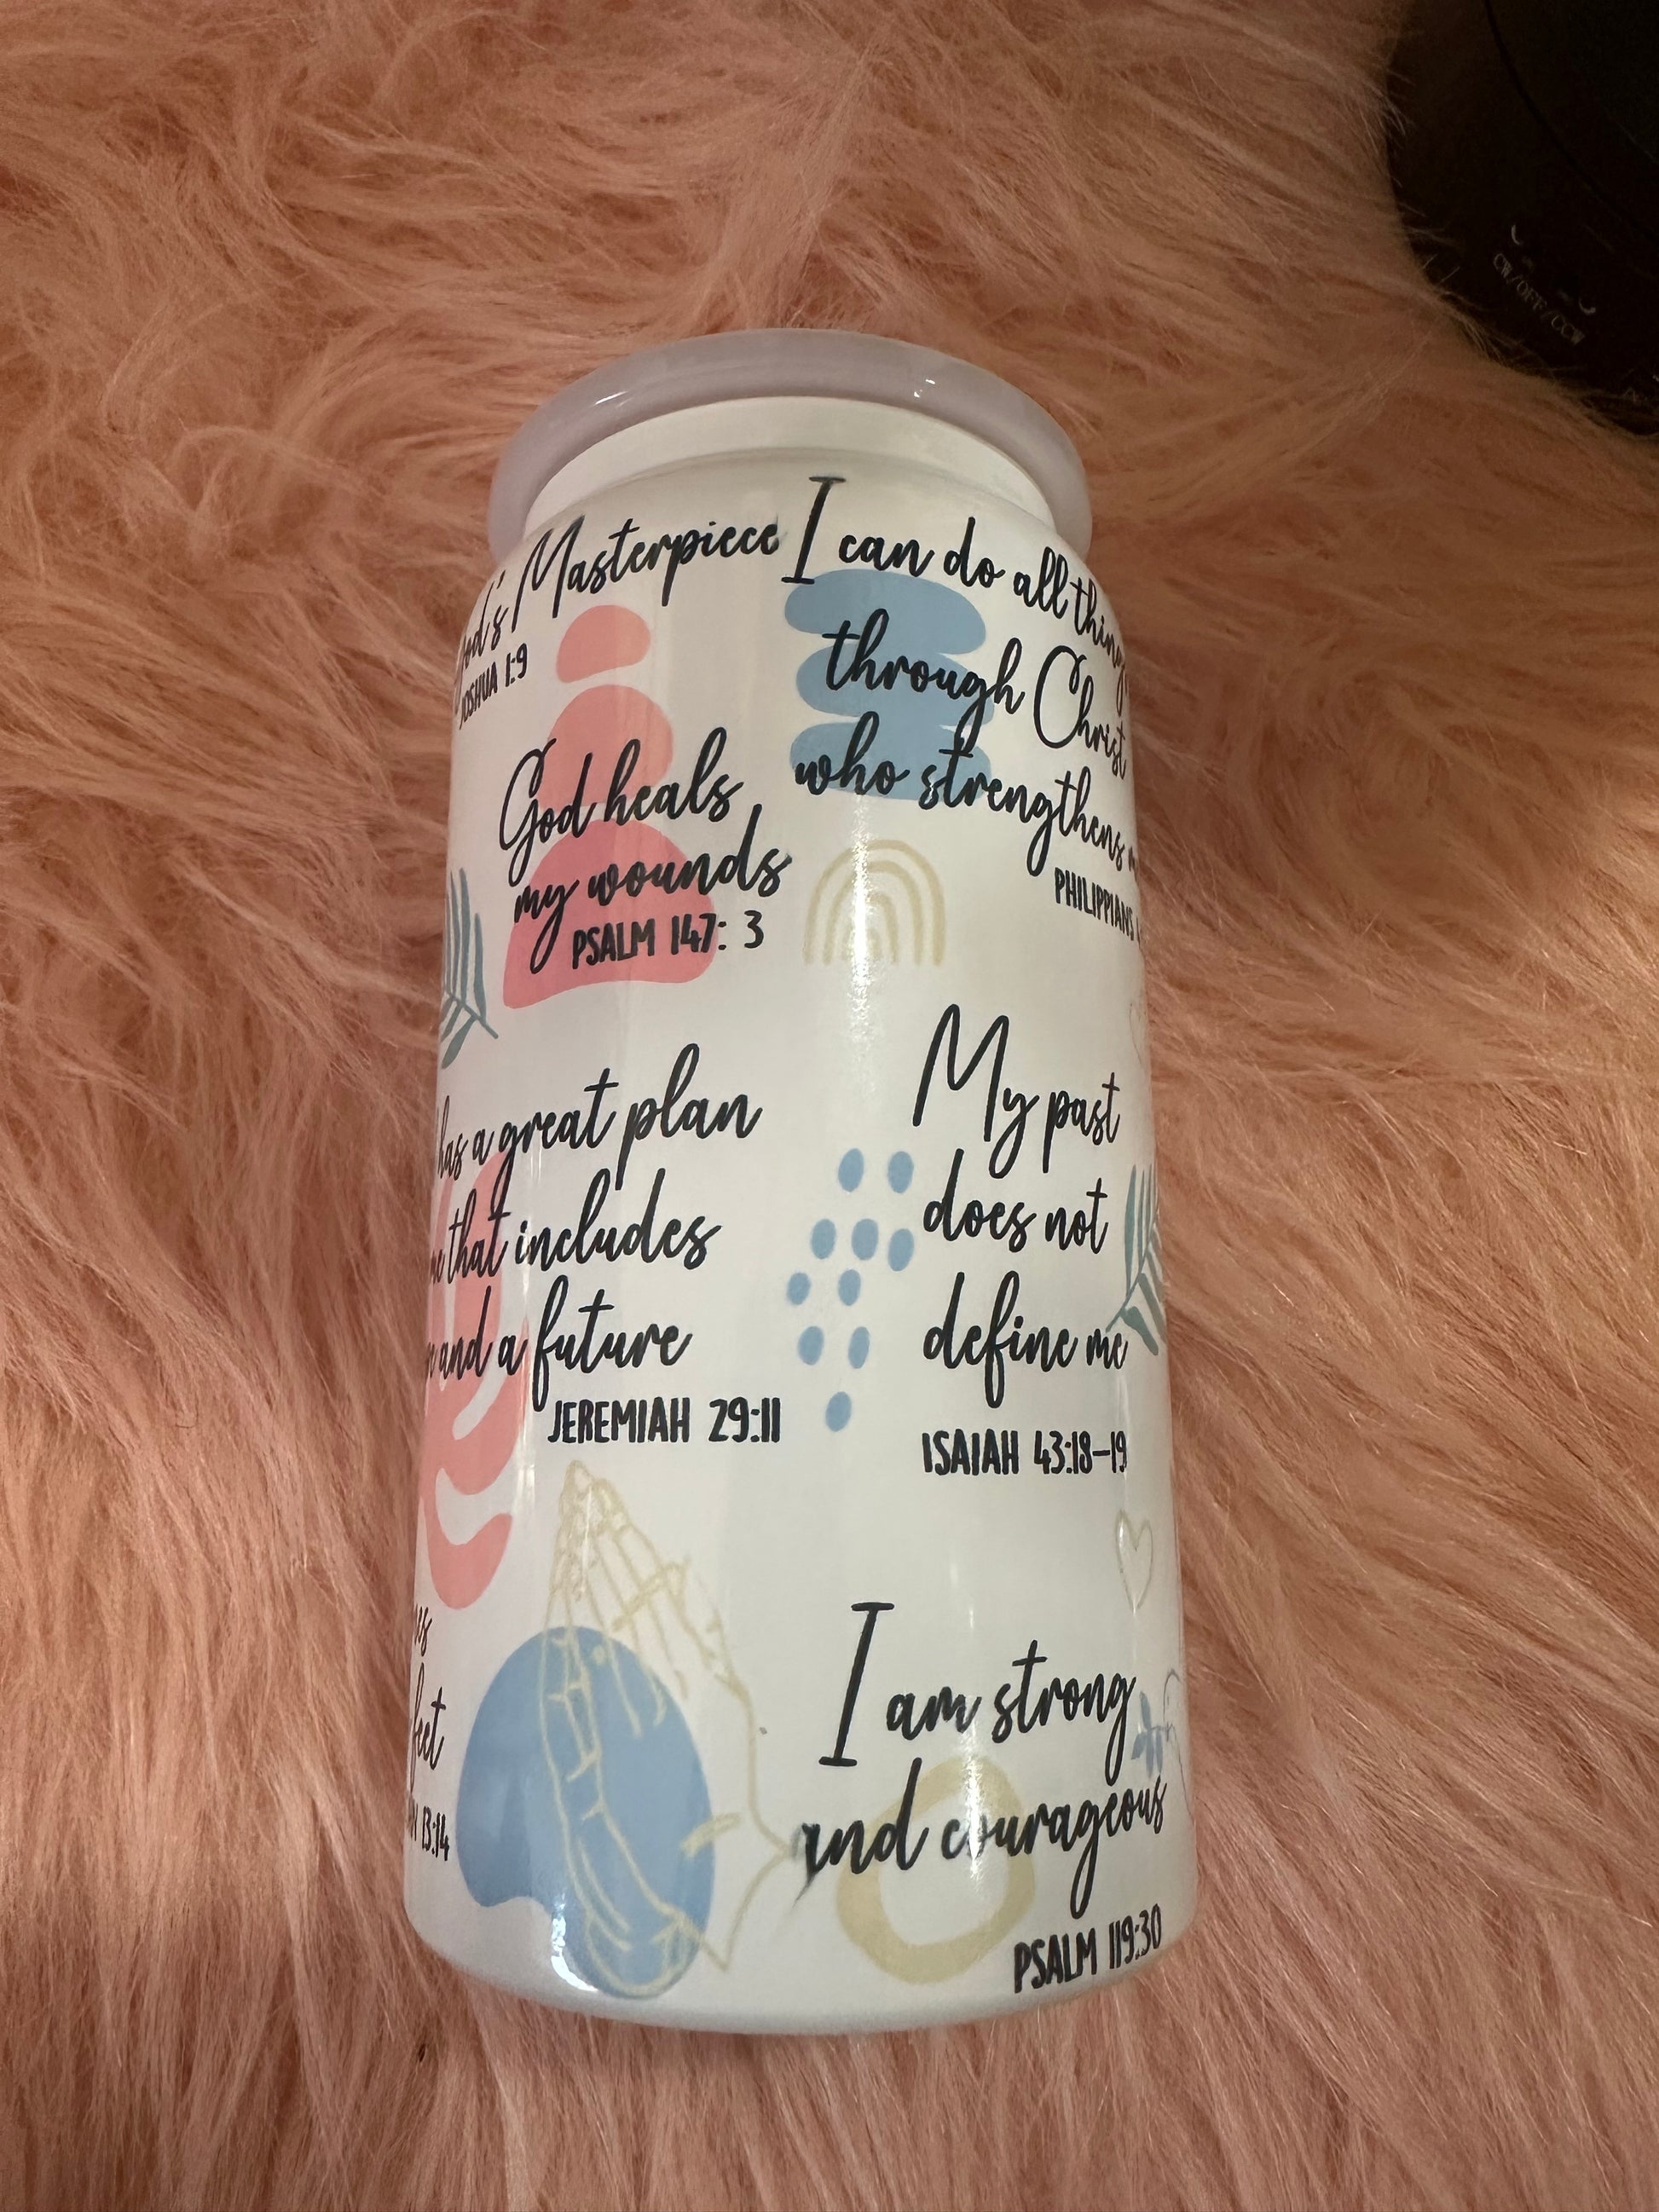 God's Masterpiece
JOSHUA 1:9
I can do all things
through Christ
who strengthens
PHILIPPIANS
God heals
my wounds
PSALM 147: 3
has a great plan
that includes
and a future
JEREMIAH 29:11
My past
does not
define me
ISAIAH 43:18-19
feet
13:14
I am strong
and courageous
PSALM 119:30
CW/OFF/CCW